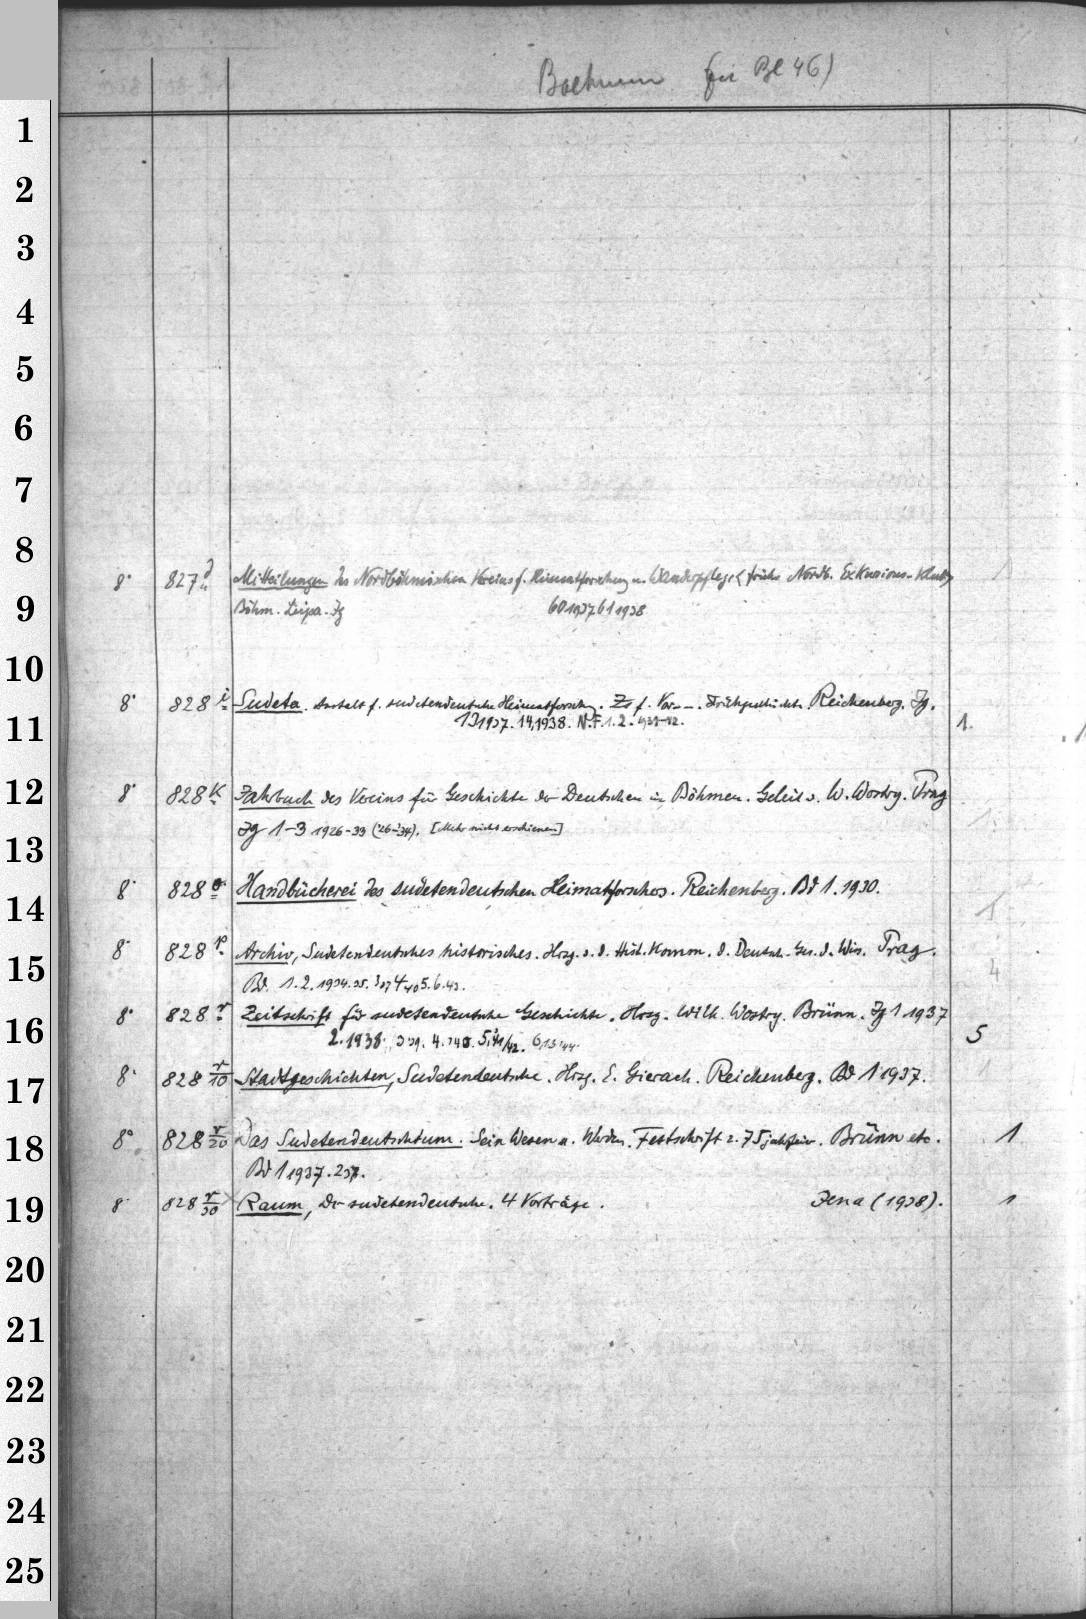 Boehmen (für Bl 46)
1
2
3
4
5
6
7
8
8° 827 d Mitteilungen des Nordböhmischen Vereins f. Heimatforschung u. Wanderpflege (früher Nordb. Exkursions-Klub)
9 Böhm. Leipa. Jg 60 1937 61 1938
10
8° 828 i Sudeta. Anstalt f. sudetendeutsche Heimatforschg. Zs f. Vor- Frühgeschichte. Reichenberg. Jg.
11 13 1937. 14, 1938. N.F. 1. 2. 1939-42. 1.
12 8° 828 k Jahrbuch des Vereins für Geschichte der Deutschen in Böhmen. Geleit v. W. Wostry. Prag
13 Jg 1-3 1926-33 ('26-'34). [Mehr nicht erschienen]
14 8° 828 o Handbücherei des sudetendeutschen Heimatforschers. Reichenberg. Bd 1. 1930. 1
8° 828 p Archiv, Sudetendeutsches historisches. Hrsg. v. d. Hist. Komm. d. Deutsch. Ges. d. Wis. Prag.
15 Bd. 1. 2. 1934. 35. 3 37 4 40 5. 6. 43. 4
16 8° 828 r Zeitschrift für sudetendeutsche Geschichte. Hrsg. Wilh. Wostry. Brünn. Jg 1 1937
2. 1938. 3 39. 4. 40. 5. 41/42. 6, 1344. 5
17 8° 828 r/10 Stadtgeschichten, Sudetendeutsche. Hrsg. E. Gierach. Reichenberg. Bd 1 1937. 1
18 8° 828 r/20 Das Sudetendeutschtum. Sein Wesen u. Werden. Festschrift z. 75jahrfeier. Brünn etc. 1
Bd 1 1937. 2 37.
19 8 828 r/30 Raum, Der sudetendeutsche. 4 Vorträge. Jena (1938). 1
20
21
22
23
24
25